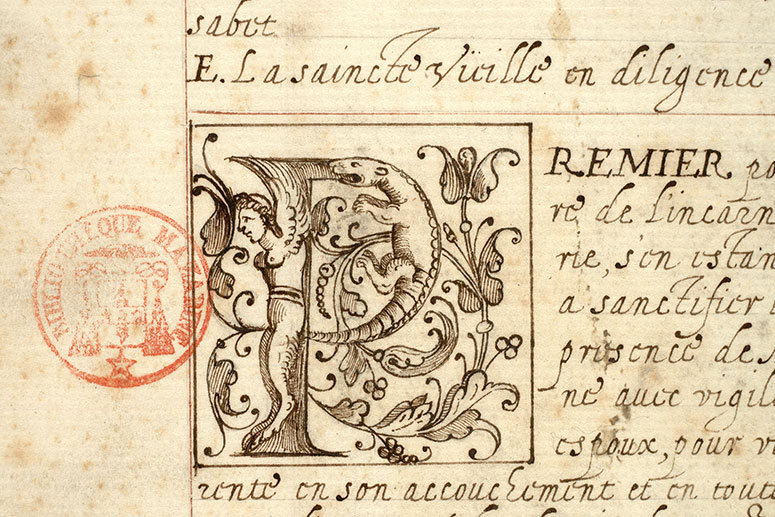 sabet
E. La saincte Vieille en diligence
PREMIER po
re de l'incarn
rie, s'en estan
a sanctifier
presence de
ne avec vigil
espoux, pour v
rente en son accouchement et en toute
BIBLIOTHEQUE MAZARINE